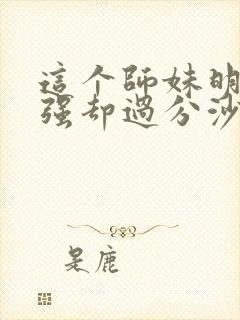 這个師妹明
强却過分沙
是鹿